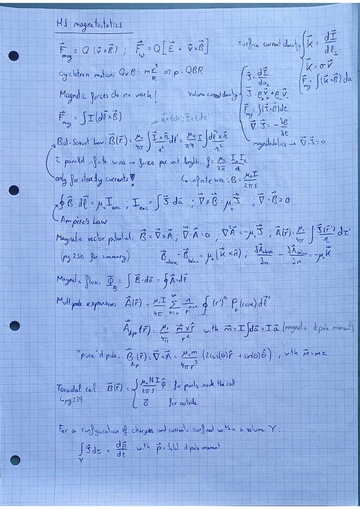 H5 magnetostatics
F⃗_mag = Q (v⃗×B⃗) ; F⃗_tot = Q[E⃗ + v⃗×B⃗]
surface current density K⃗ = dI⃗/dl⊥
K⃗ = σv⃗
F⃗_mag = ∫(K⃗×B⃗)da
Cyclotron motion: QvB = m v²/R => p = QBR
Magnetic forces do no work!
volume current density J⃗ = dI⃗/da⊥
J⃗ = ρv⃗
F⃗_mag = ∫(J⃗×B⃗)dτ
∇⃗·J⃗ = -∂ρ/∂t
magnetostatics → ∇⃗·J⃗ = 0
F⃗_mag = ∫I(dl⃗×B⃗)
Biot-Savart Law: B⃗(r⃗) = μ₀/4π ∫ I⃗×r̂/r² dl' = μ₀/4π I ∫ dl⃗'×r̂/r²
2 parallel infinite wires → force per unit length: f = μ₀/2π I₁I₂/d
only for steady currents!!
↳ infinite wire: B = μ₀I/2πs
∮B⃗·dl⃗ = μ₀I_enc , I_enc = ∫J⃗·da⃗ ; ∇⃗×B⃗ = μ₀J⃗ , ∇⃗·B⃗ = 0
Ampère's Law
Magnetic vector potential: B⃗ = ∇⃗×A⃗ , ∇⃗·A⃗ = 0 , ∇²A⃗ = -μ₀J⃗ ; A⃗(r⃗) = μ₀/4π ∫ J⃗(r⃗')/r dτ'
(pg 250 for summary) B⃗_above - B⃗_below = μ₀(K⃗×n̂) ; ∂A⃗_above/∂n - ∂A⃗_below/∂n = -μ₀K⃗
Magnetic flux: Φ_B = ∫B⃗·da⃗ = ∮A⃗·dl⃗
Multipole expansion: A⃗(r⃗) = μ₀I/4π Σ 1/rⁿ⁺¹ ∮(r')ⁿ Pₙ(cosα)dl⃗'
A⃗_dip(r⃗) = μ₀/4π m⃗×r̂/r² with m⃗ = I∫da⃗ = Ia⃗ (magnetic dipole moment)
"pure" dipole: B⃗_dip(r⃗) = ∇⃗×A⃗ = μ₀m/4πr³ (2cos(θ)r̂ + sin(θ)θ̂) , with m⃗ = mẑ
Toroidal coil: B⃗(r⃗) = { μ₀NI/2πs φ̂ for points inside the coil
↳ pg 239 0⃗ for outside
For a configuration of charges and currents confined within a volume V:
∫_V J⃗dτ = dp⃗/dt with p⃗ = total dipole moment